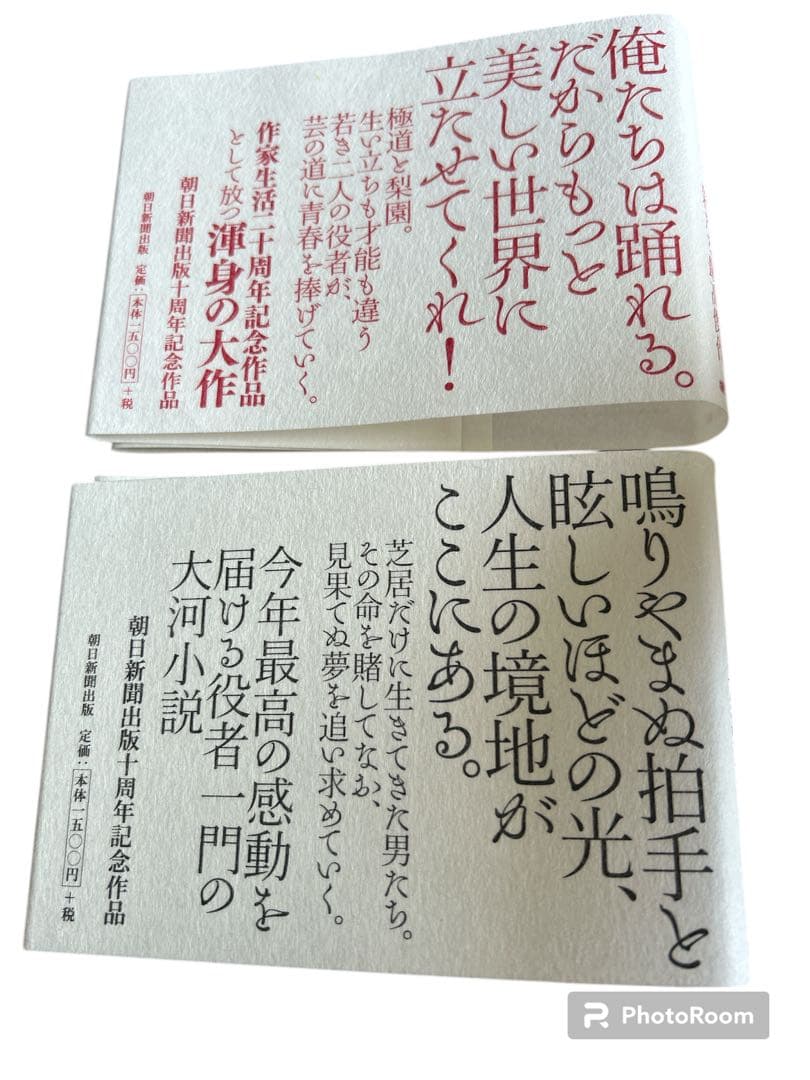 俺たちは踊れる。
だからもっと
美しい世界に
立たせてくれ！
極道と梨園。
生い立ちも才能も違う
若き二人の役者が、
芸の道に青春を捧げていく。
作家生活二十周年記念作品
として放つ渾身の大作
朝日新聞出版十周年記念作品
朝日新聞出版 定価：本体一五〇〇円＋税
鳴りやまぬ拍手と
眩しいほどの光、
人生の境地が
ここにある。
芝居だけに生きてきた男たち。
その命を賭してなお、
見果てぬ夢を追い求めていく。
今年最高の感動を
届ける役者一門の
大河小説
朝日新聞出版十周年記念作品
朝日新聞出版 定価：本体一五〇〇円＋税
PhotoRoom